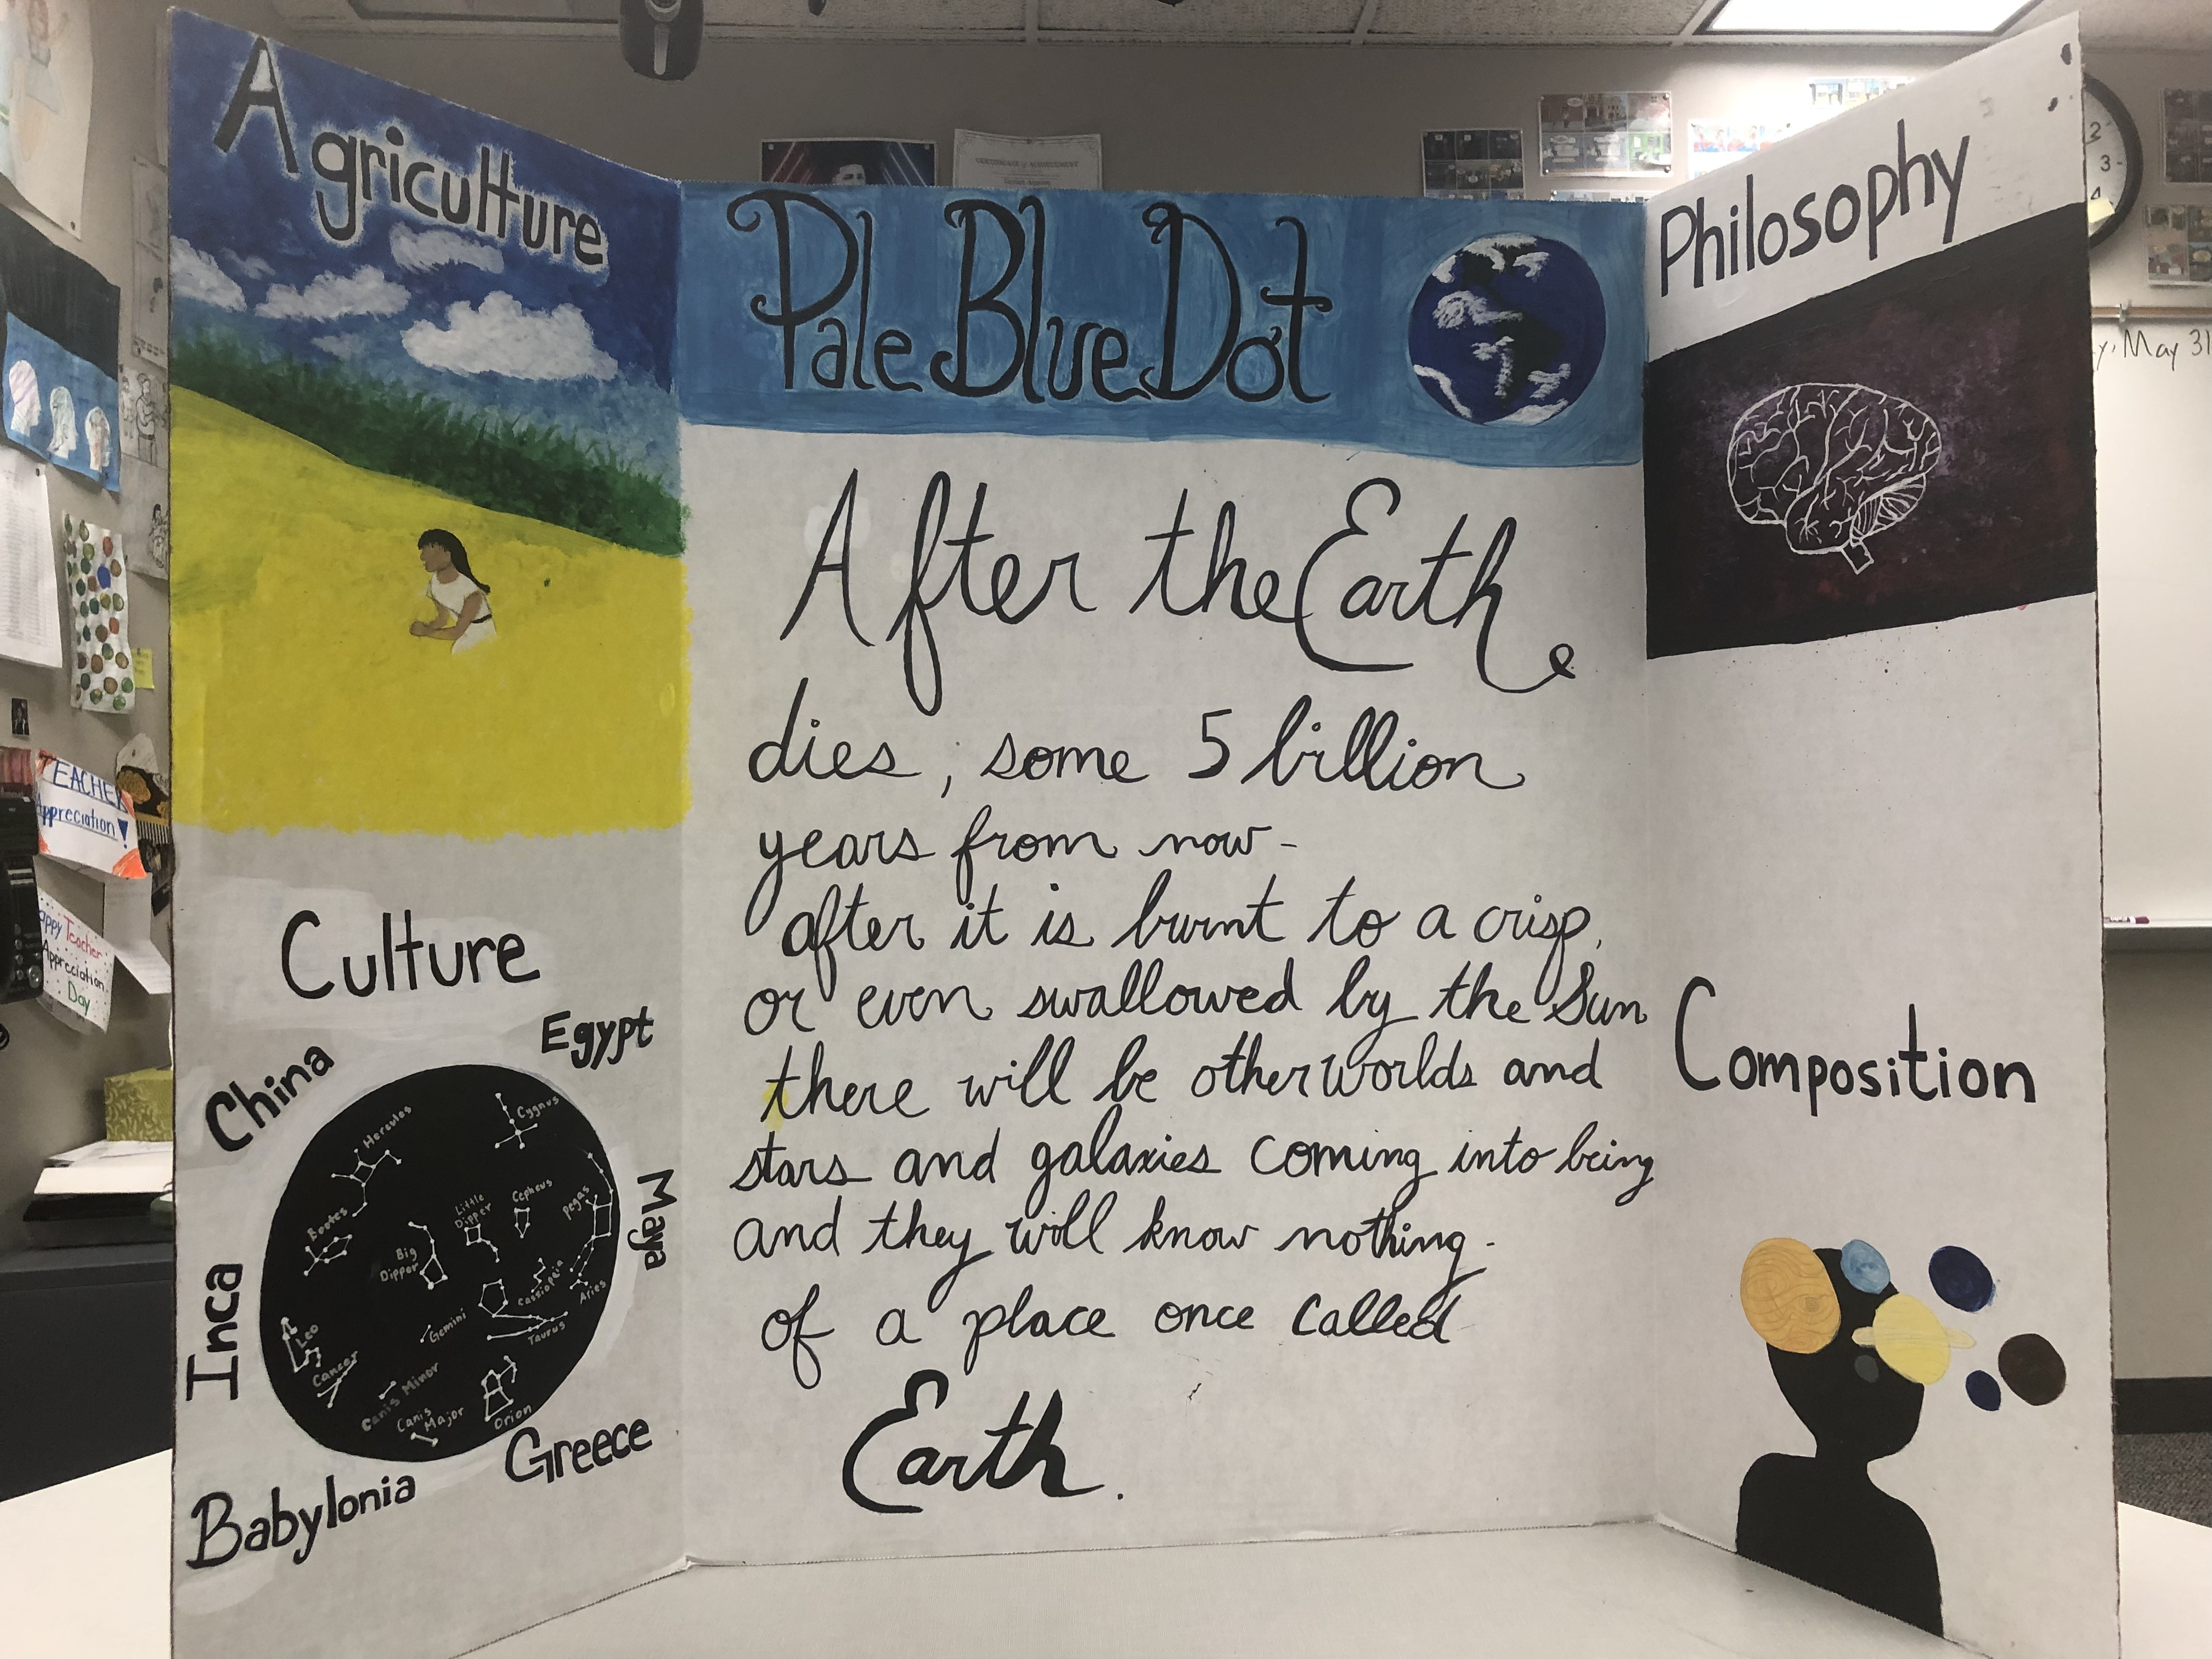 Agriculture
Culture
China
Egypt
Maya
Inca
Babylonia
Greece
Hercules
Cygnus
Bootes
Little
Dipper
Cepheus
Pegas
Big
Dipper
Cassiopeia
Aries
Gemini
Taurus
Leo
Cancer
Canis Minor
Canis
Major
Orion
Pale Blue Dot
After the Earth
dies, some 5 billion
years from now-
after it is burnt to a crisp,
or even swallowed by the Sun
there will be other worlds and
stars and galaxies coming into being
and they will know nothing-
of a place once called
Earth.
Philosophy
Composition
CERTIFICATE of ACHIEVEMENT
TEACHER
Appreciation!
appy Teacher
Appreciation
Day
y, May 31
2
3
4